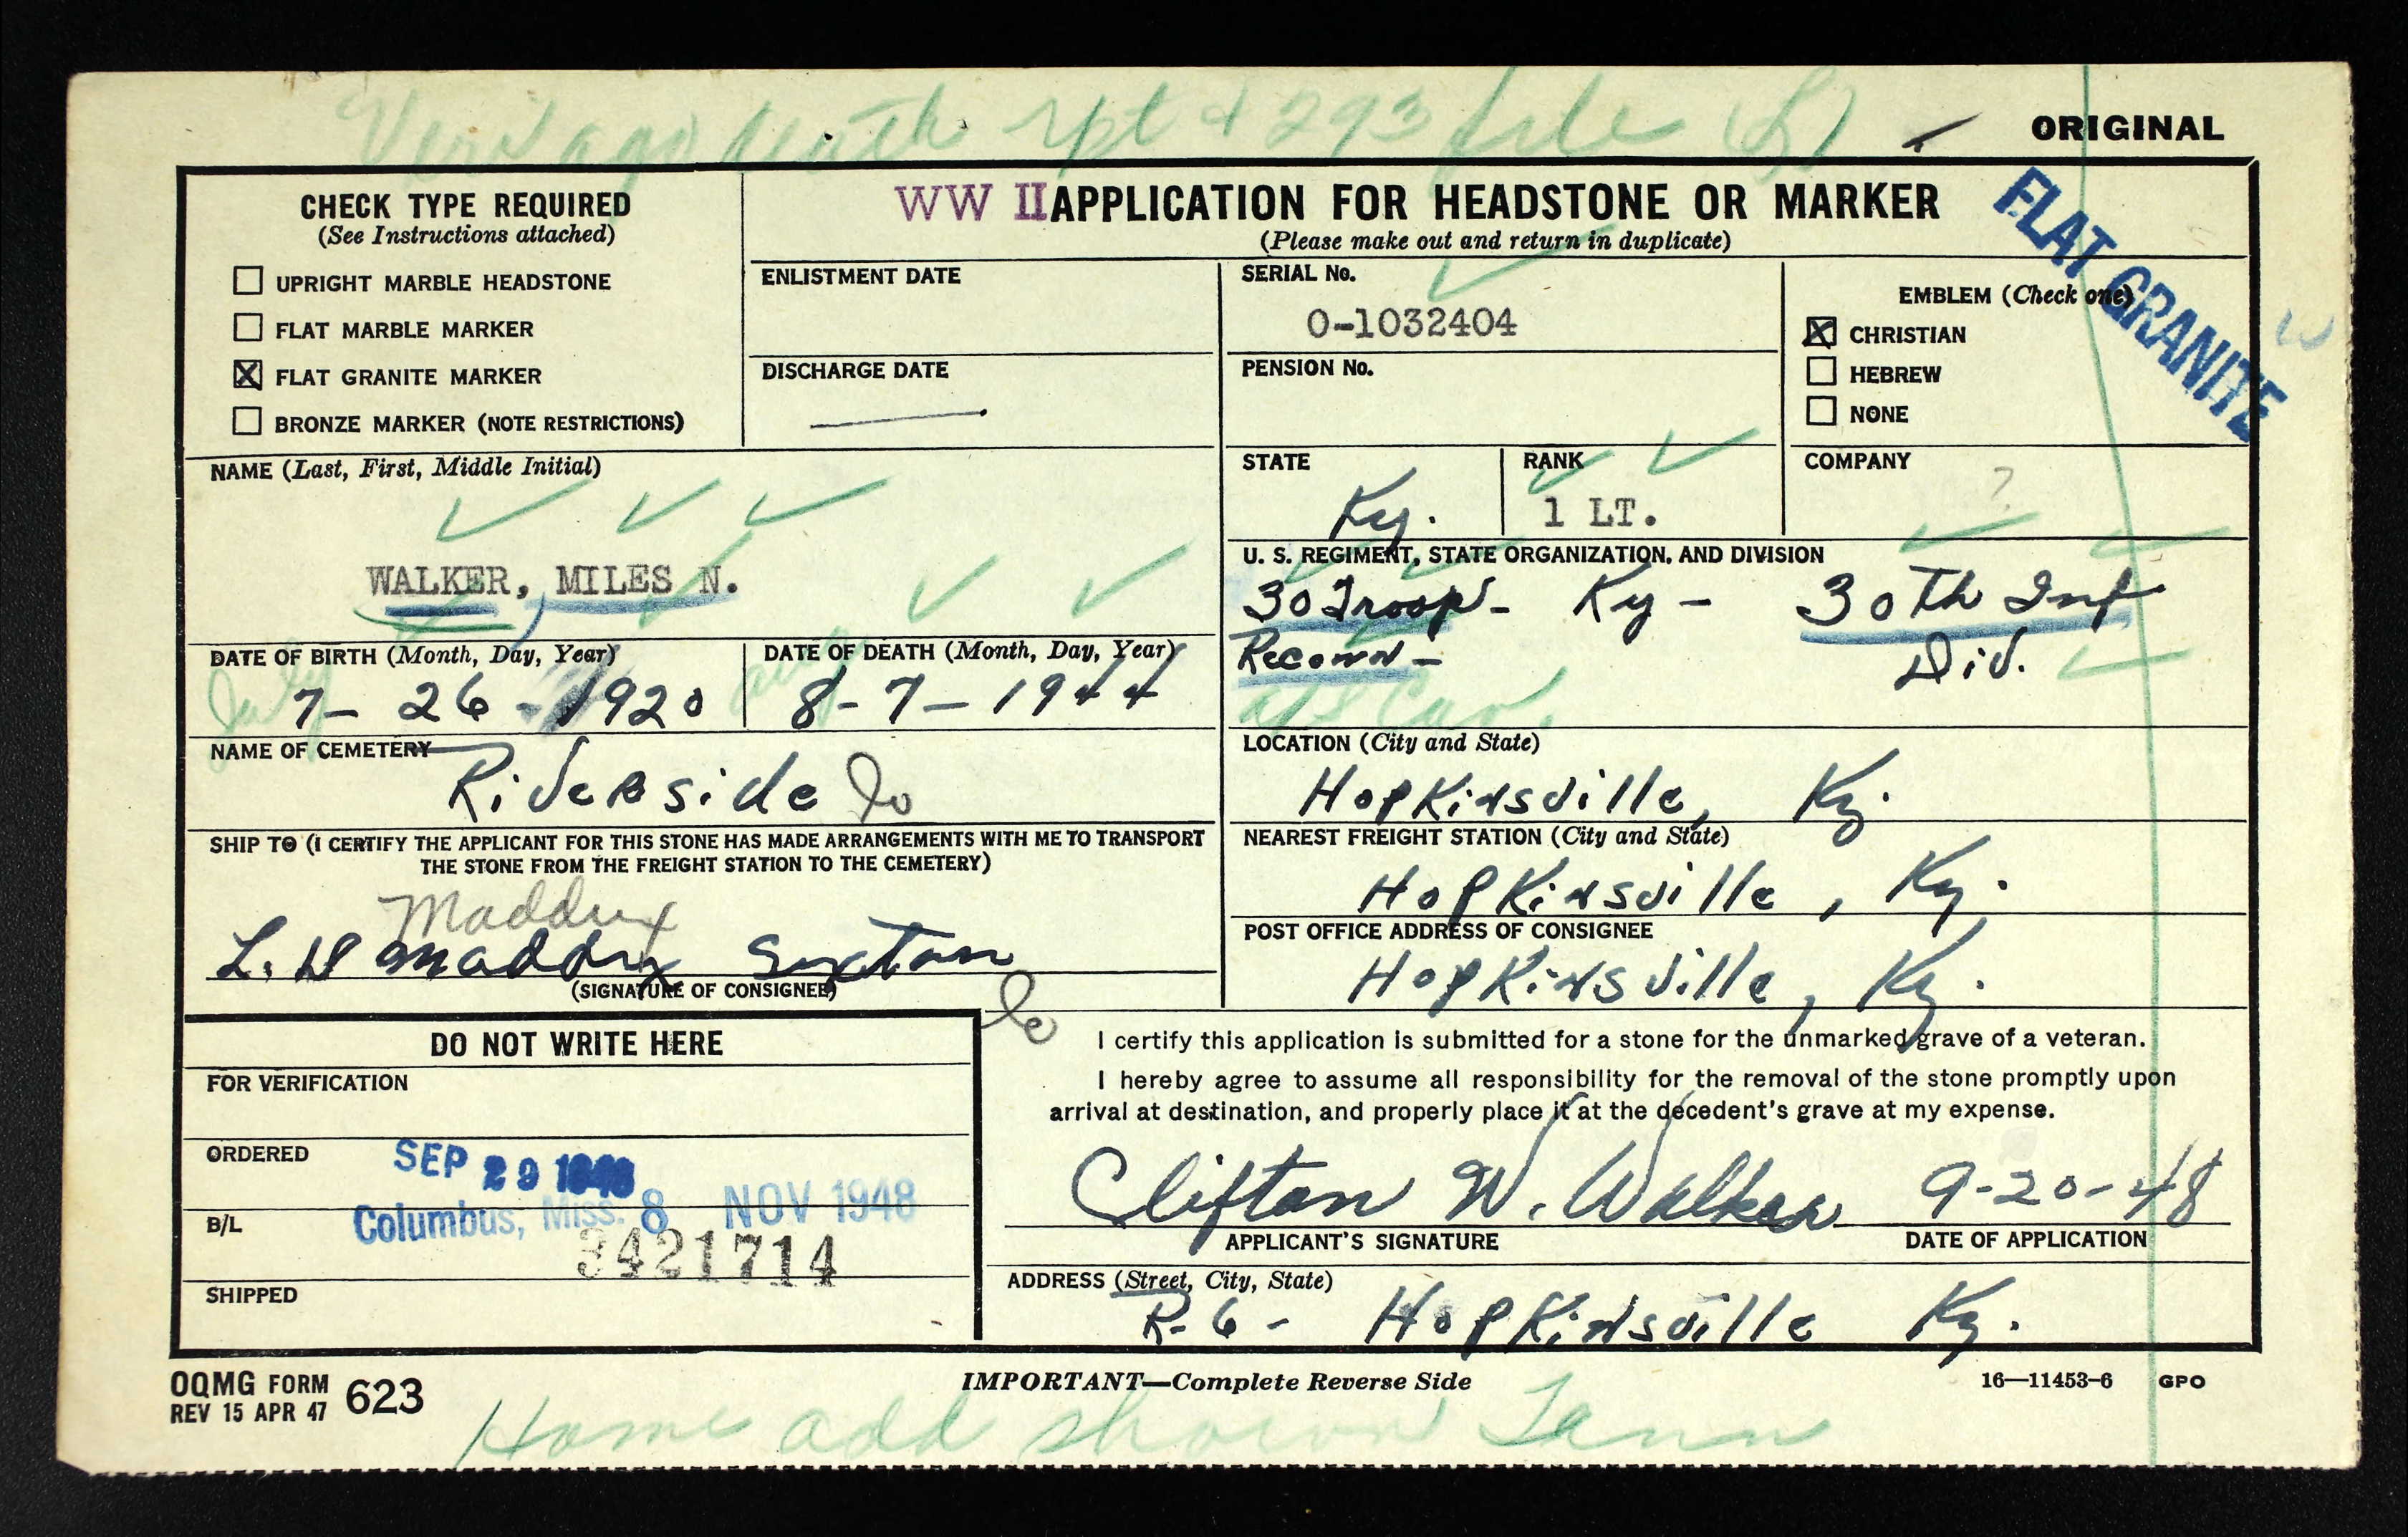 Verif ago death rpt & 293 file
ORIGINAL
CHECK TYPE REQUIRED
(See Instructions attached)
☐ UPRIGHT MARBLE HEADSTONE
☐ FLAT MARBLE MARKER
☒ FLAT GRANITE MARKER
☐ BRONZE MARKER (NOTE RESTRICTIONS)
WW II APPLICATION FOR HEADSTONE OR MARKER
(Please make out and return in duplicate)
FLAT GRANITE
ENLISTMENT DATE
DISCHARGE DATE
SERIAL No.
O-1032404
PENSION No.
EMBLEM (Check one)
☒ CHRISTIAN
☐ HEBREW
☐ NONE
NAME (Last, First, Middle Initial)
WALKER, MILES N.
STATE
Ky.
RANK
1 LT.
COMPANY
?
U. S. REGIMENT, STATE ORGANIZATION, AND DIVISION
30 Troop - Ky - 30th Inf
Reconn - Div.
Cav.
DATE OF BIRTH (Month, Day, Year)
July
7 - 26 - 1920
DATE OF DEATH (Month, Day, Year)
Aug
8 - 7 - 1944
NAME OF CEMETERY
Riverside
LOCATION (City and State)
Hopkinsville, Ky.
SHIP TO (I CERTIFY THE APPLICANT FOR THIS STONE HAS MADE ARRANGEMENTS WITH ME TO TRANSPORT
THE STONE FROM THE FREIGHT STATION TO THE CEMETERY)
Maddux
L. W Maddux Sexton
(SIGNATURE OF CONSIGNEE)
NEAREST FREIGHT STATION (City and State)
Hopkinsville, Ky.
POST OFFICE ADDRESS OF CONSIGNEE
Hopkinsville, Ky.
DO NOT WRITE HERE
FOR VERIFICATION
ORDERED
SEP 29 1948
B/L
Columbus, Miss. 8 NOV 1948
3421714
SHIPPED
I certify this application is submitted for a stone for the unmarked grave of a veteran.
I hereby agree to assume all responsibility for the removal of the stone promptly upon
arrival at destination, and properly place it at the decedent's grave at my expense.
Clifton W. Walker 9-20-48
APPLICANT'S SIGNATURE DATE OF APPLICATION
ADDRESS (Street, City, State)
R-6- Hopkinsville Ky.
OQMG FORM 623
REV 15 APR 47
IMPORTANT—Complete Reverse Side
16—11453-6 GPO
Home add shown Tenn